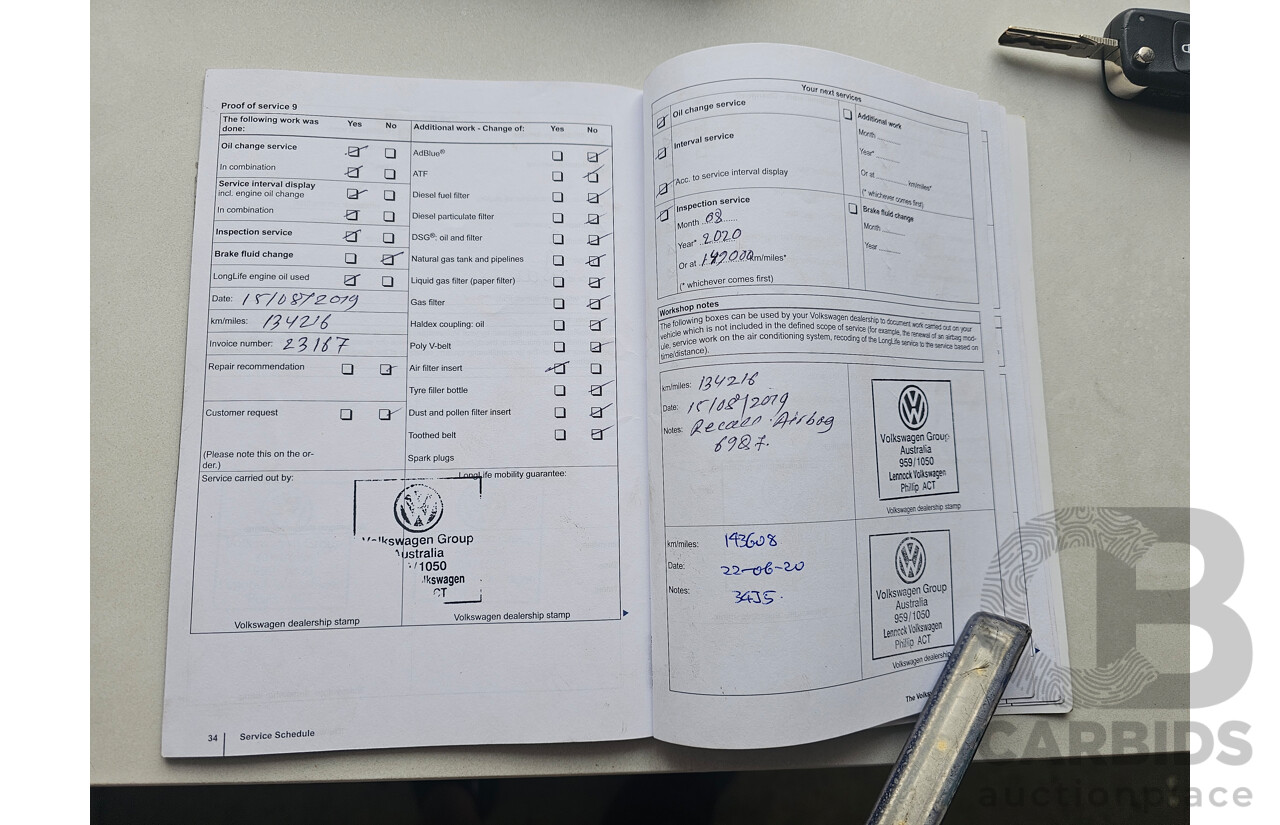 Proof of service 9
The following work was done: Yes No
Oil change service
In combination
Service interval display
incl. engine oil change
In combination
Inspection service
Brake fluid change
LongLife engine oil used
Date: 15/08/2019
km/miles: 134216
Invoice number: 23167
Repair recommendation
Customer request
(Please note this on the or-
der.)
Additional work - Change of: Yes No
AdBlue®
ATF
Diesel fuel filter
Diesel particulate filter
DSG®: oil and filter
Natural gas tank and pipelines
Liquid gas filter (paper filter)
Gas filter
Haldex coupling: oil
Poly V-belt
Air filter insert
Tyre filler bottle
Dust and pollen filter insert
Toothed belt
Spark plugs
Service carried out by:
LongLife mobility guarantee:
Volkswagen Group
Australia
/1050
lkswagen
CT
Volkswagen dealership stamp
Volkswagen dealership stamp
34 Service Schedule
Your next services
Oil change service
Interval service
Acc. to service interval display
Inspection service
Month 08
Year* 2020
Or at km/miles*
(* whichever comes first)
Additional work
Month
Year*
Or at km/miles*
(* whichever comes first)
Brake fluid change
Month
Year
Workshop notes
The following boxes can be used by your Volkswagen dealership to document work carried out on your
vehicle which is not included in the defined scope of service (for example, the renewal of an airbag mod-
ule, service work on the air conditioning system, recoding of the LongLife service to the service based on
time/distance).
km/miles: 134216
Date: 15/08/2019
Notes: Recall Airbag
69Q7.
Volkswagen Group
Australia
959/1050
Lennock Volkswagen
Phillip ACT
Volkswagen dealership stamp
km/miles: 143608
Date: 22-06-20
Notes: 34J5.
Volkswagen Group
Australia
959/1050
Lennock Volkswagen
Phillip ACT
Volkswagen dealership
The Volks
CARBIDS
auctionplace